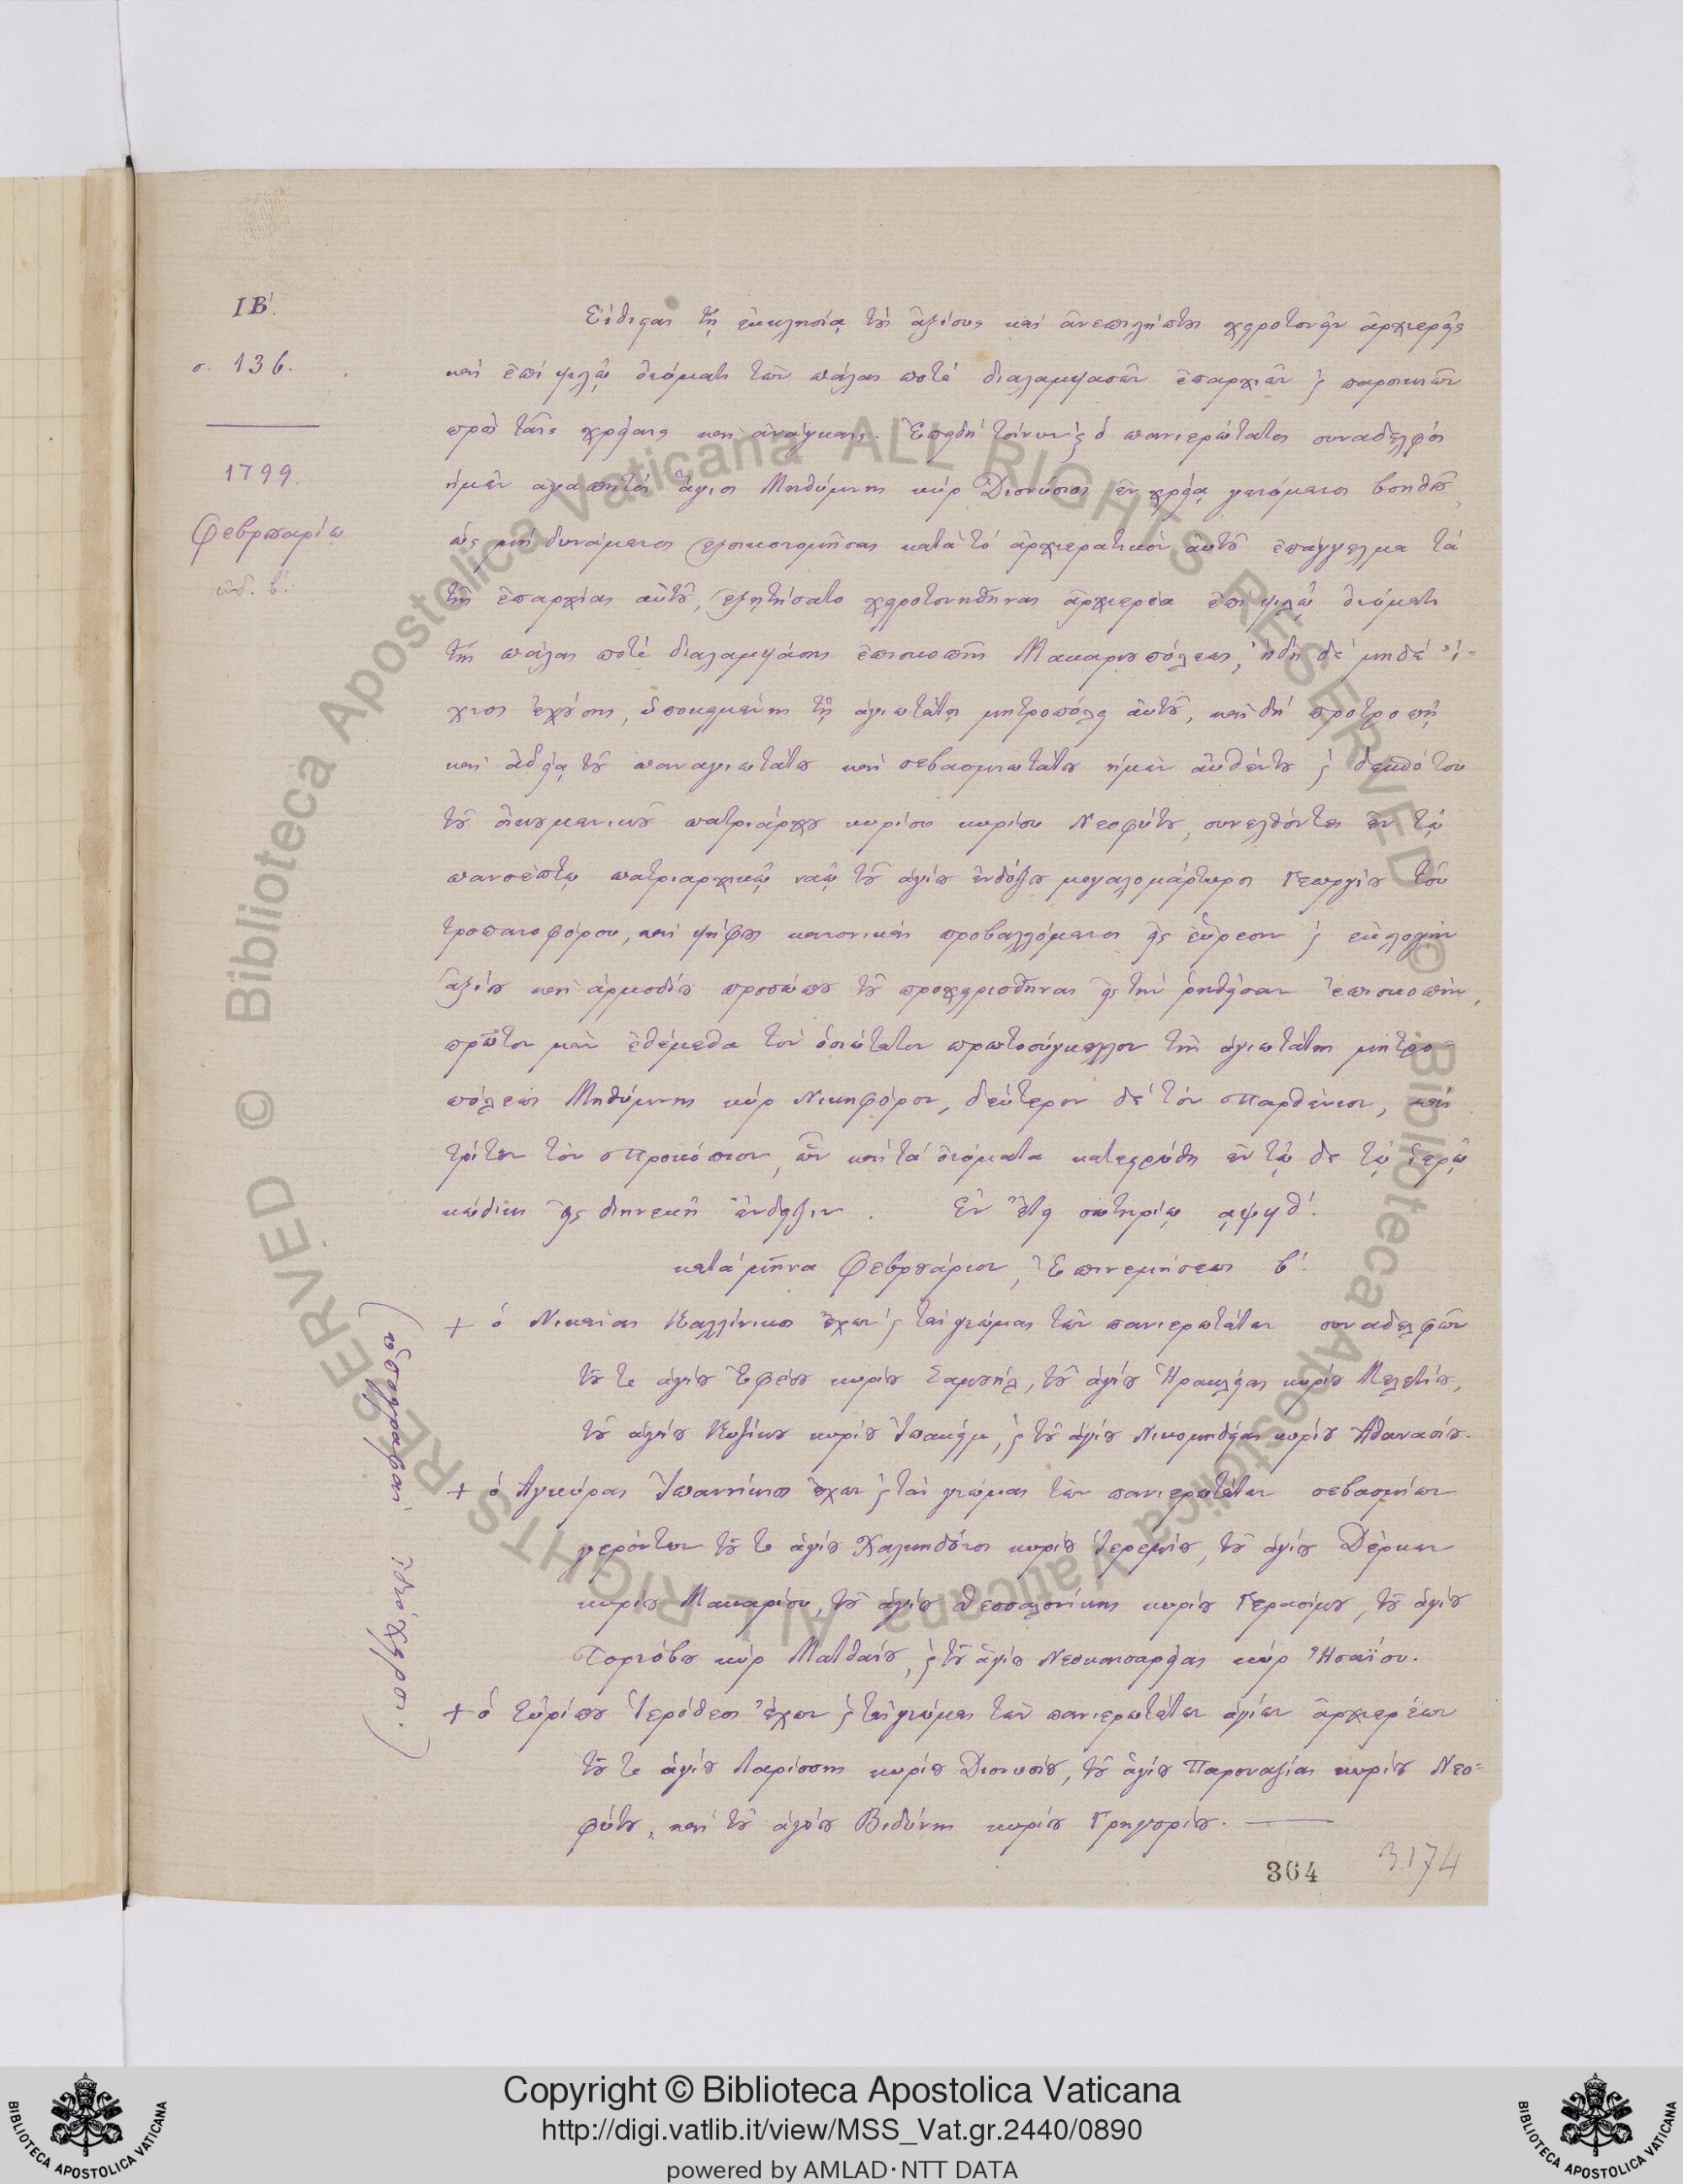 ΙΒ΄.
σ. 136.
1799.
Φεβρȣαρίῳ
ἰνδ. β΄.
Εἴθισται τῇ ἐκκλησίᾳ τοὺς ἀξίους καὶ ἀνεπιλήπτους χειροτονεῖν ἀρχιερεῖς
καὶ ἐπὶ ψιλῷ ὀνόματι τῶν πάλαι ποτὲ διαλαμψασῶν ἐπαρχιῶν ϗ παροικιῶν
πρὸς ταῖς χρείαις καὶ ἀνάγκαις. Ἐπειδὴ τοίνυν ϗ ὁ πανιερώτατος συναδελφὸς
ἡμῶν ἀγαπητὸς ἅγιος Μηθύμνης κὺρ Διονύσιος ἐν χρείᾳ γενόμενος βοηθοῦ,
ὡς μὴ δυνάμενος ἐξοικονομῆσαι κατὰ τὸ ἀρχιερατικὸν αὐτȣ͂ ἐπάγγελμα τὰ
τῆς ἐπαρχίας αὐτȣ͂, ἐζητήσατο χειροτονηθῆναι ἀρχιερέα ἐπὶ ψιλῷ ὀνόματι
τῆς πάλαι ποτὲ διαλαμψάσης ἐπισκοπῆς Μακαριȣπόλεως, ἤδη δὲ μηδὲ ἴ-
χνος ἐχȣ́σης, ὑποκειμένης τῇ ἁγιωτάτῃ μητροπόλει αὐτȣ͂, καὶ δὴ προτροπῇ
καὶ ἀδείᾳ τȣ͂ παναγιωτάτȣ καὶ σεβασμιωτάτȣ ἡμῶν αὐθέντȣ ϗ δεσπότου
τȣ͂ οἰκȣμενικȣ͂ πατριάρχȣ κυρίου κυρίου Νεοφύτȣ, συνελθόντες ἐν τῷ
πανσέπτῳ πατριαρχικῷ ναῷ τȣ͂ ἁγίȣ ἐνδόξȣ μεγαλομάρτυρος Γεωργίȣ τοῦ
τροπαιοφόρου, καὶ ψήφους κανονικὰς προβαλλόμενοι εἰς εὕρεσιν ϗ ἐκλογὴν
ἀξίȣ καὶ ἁρμοδίȣ προσώπȣ τȣ͂ προχειρισθῆναι εἰς τὴν ῥηθεῖσαν ἐπισκοπὴν,
πρῶτον μὲν ἐθέμεθα τὸν ὁσιώτατον πρωτοσύγκελλον τῆς ἁγιωτάτης μητρο-
πόλεως Μηθύμνης κὺρ Νικηφόρον, δεύτερον δὲ τὸν Παρθένιον, καὶ
τρίτον τὸν Προκόπιον, ὧν καὶ τὰ ὀνόματα κατεγράφη ἐν τῷδε τῷ ἱερῷ
κώδικι εἰς διηνεκῆ ἔνδειξιν. Ἐν ἔτει σωτηρίῳ ͵αψϟθ΄.
κατὰ μῆνα Φεβρȣάριον, Ἐπινεμήσεως β΄.
+ ὁ Νικαίας Καλλίνικος ἔχων ϗ τὰς γνώμας τῶν πανιερωτάτων συναδελφῶν
τȣ͂ τε ἁγίȣ Ἐφέσȣ κυρίȣ Σαμȣὴλ, τȣ͂ ἁγίȣ Ἡρακλείας κυρίȣ Μελετίȣ,
τȣ͂ ἁγίȣ Κυζίκȣ κυρίȣ Ἰωακεὶμ, ϗ τȣ͂ ἁγίȣ Νικομηδείας κυρίȣ Ἀθανασίȣ.
+ ὁ Ἀγκύρας Ἰωαννίκιος ἔχων ϗ τὰς γνώμας τῶν πανιερωτάτων σεβασμίων
γερόντων τȣ͂ τε ἁγίȣ Χαλκηδόνος κυρίȣ Ἱερεμίȣ, τȣ͂ ἁγίȣ Δέρκων
κυρίȣ Μακαρίου, τȣ͂ ἁγίȣ Θεσσαλονίκης κυρίȣ Γερασίμȣ, τȣ͂ ἁγίȣ
Τορνόβȣ κὺρ Ματθαίȣ, ϗ τȣ͂ ἁγίȣ Νεοκαισαρείας κὺρ Ἡσαΐου.
+ ὁ Εὐρίπȣ Ἱερόθεος ἔχων ϗ τὰς γνώμας τῶν πανιερωτάτων ἁγίων ἀρχιερέων
τȣ͂ τε ἁγίȣ Λαρίσσης κυρίȣ Διονυσίȣ, τȣ͂ ἁγίȣ Παροναξίας κυρίȣ Νεο-
φύτȣ, καὶ τȣ͂ ἁγίȣ Βιδύνης κυρίȣ Γρηγορίȣ.
(αἱ ὑπογραφαὶ ἰδιόχειροι.)
364
3.174
Copyright © Biblioteca Apostolica Vaticana
http://digi.vatlib.it/view/MSS_Vat.gr.2440/0890
powered by AMLAD·NTT DATA
BIBLIOTECA APOSTOLICA VATICANA
BIBLIOTECA APOSTOLICA VATICANA
© Biblioteca Apostolica Vaticana ALL RIGHTS RESERVED
© Biblioteca Apostolica Vaticana ALL RIGHTS RESERVED